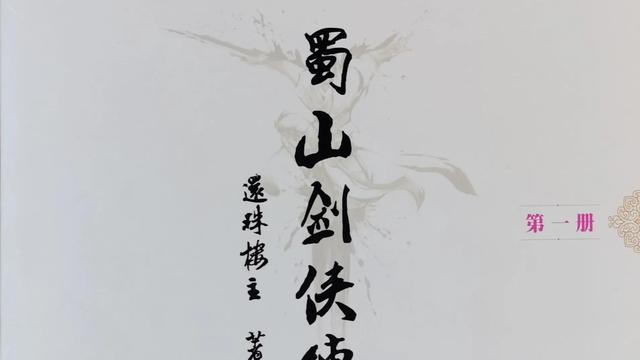 蜀山剑侠傳
還珠樓主 著
第一册